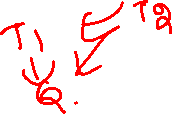 T1 T2
Q.